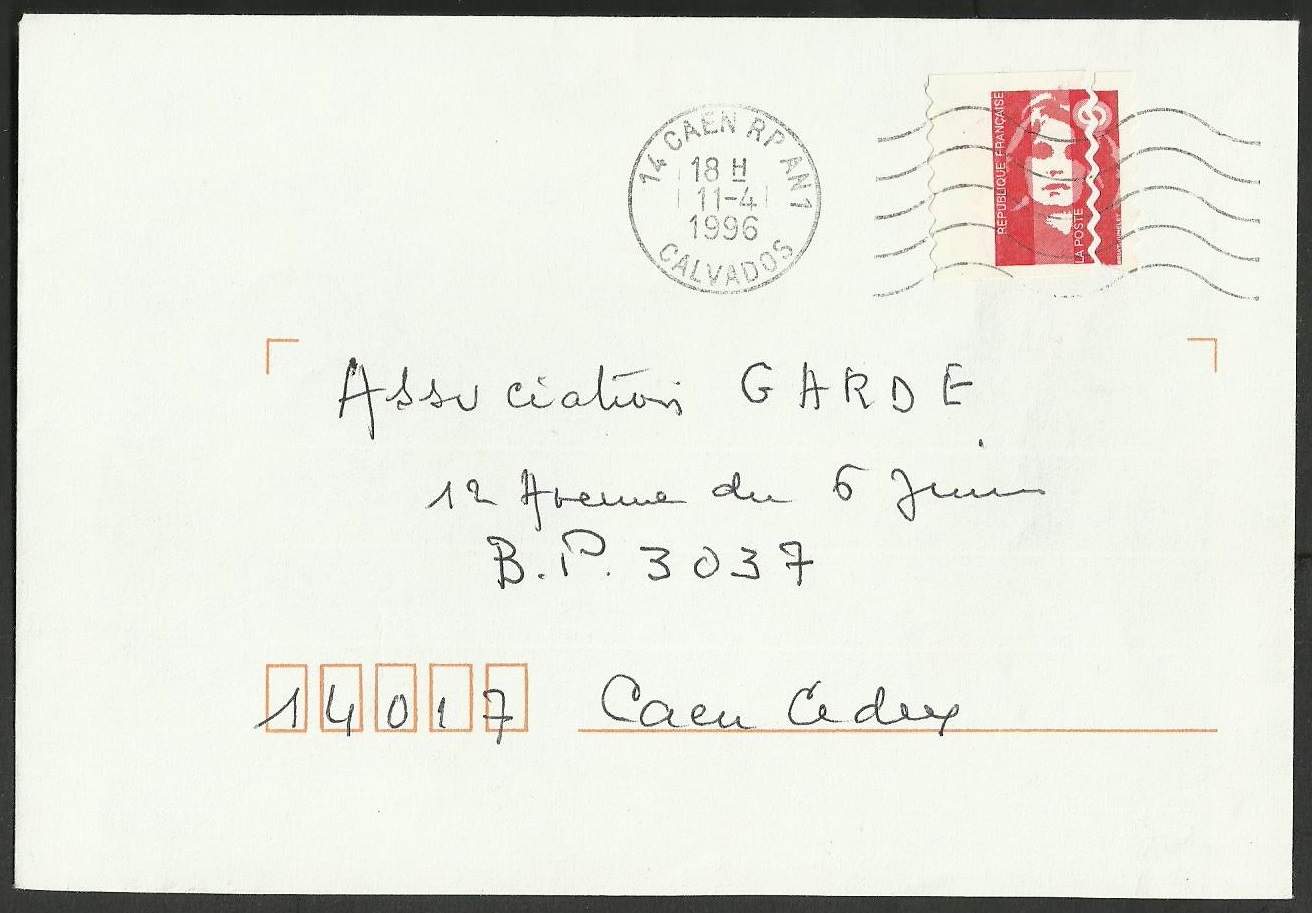 14 CAEN RP AN1
18 H
11-4
1996
CALVADOS
REPUBLIQUE FRANÇAISE
LA POSTE
Association GARDE
12 Avenue du 6 Juin
B.P. 3037
14017 Caen Cedex